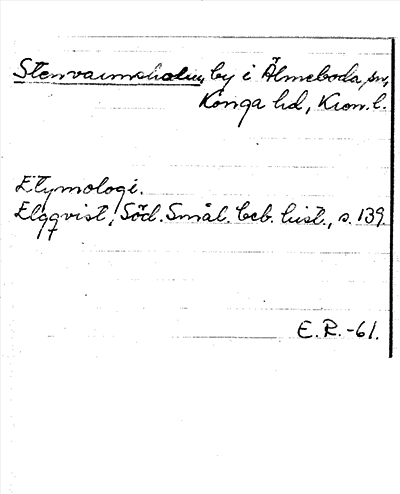 by i Älmeboda sn,
Konga hd, Kron. l.
Etymologi.
Elgqvist, Söd. Smål. beb. hist., s. 139.
E.R. -61.